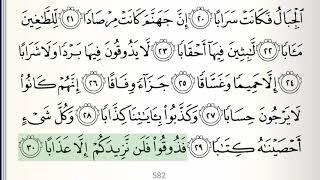 ٱلْجِبَالُ فَكَانَتْ سَرَابًا ٢٠ إِنَّ جَهَنَّمَ كَانَتْ مِرْصَادًا ٢١ لِّلطَّٰغِينَ
مَـَٔابًا ٢٢ لَّٰبِثِينَ فِيهَآ أَحْقَابًا ٢٣ لَّا يَذُوقُونَ فِيهَا بَرْدًا وَلَا شَرَابًا
٢٤ إِلَّا حَمِيمًا وَغَسَّاقًا ٢٥ جَزَآءً وِفَاقًا ٢٦ إِنَّهُمْ كَانُوا۟
لَا يَرْجُونَ حِسَابًا ٢٧ وَكَذَّبُوا۟ بِـَٔايَٰتِنَا كِذَّابًا ٢٨ وَكُلَّ شَىْءٍ
أَحْصَيْنَٰهُ كِتَٰبًا ٢٩ فَذُوقُوا۟ فَلَن نَّزِيدَكُمْ إِلَّا عَذَابًا ٣٠
582